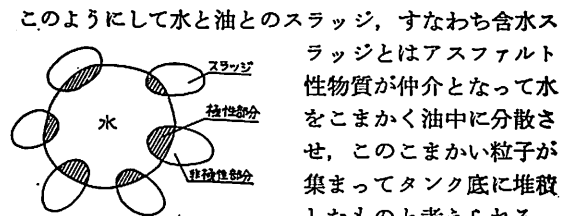 このようにして水と油とのスラッジ，すなわち含水ス
ラッジとはアスファルト
性物質が仲介となって水
をこまかく油中に分散さ
せ，このこまかい粒子が
集まってタンク底に堆積
したものと考えられる
スラッジ
極性部分
水
非極性部分